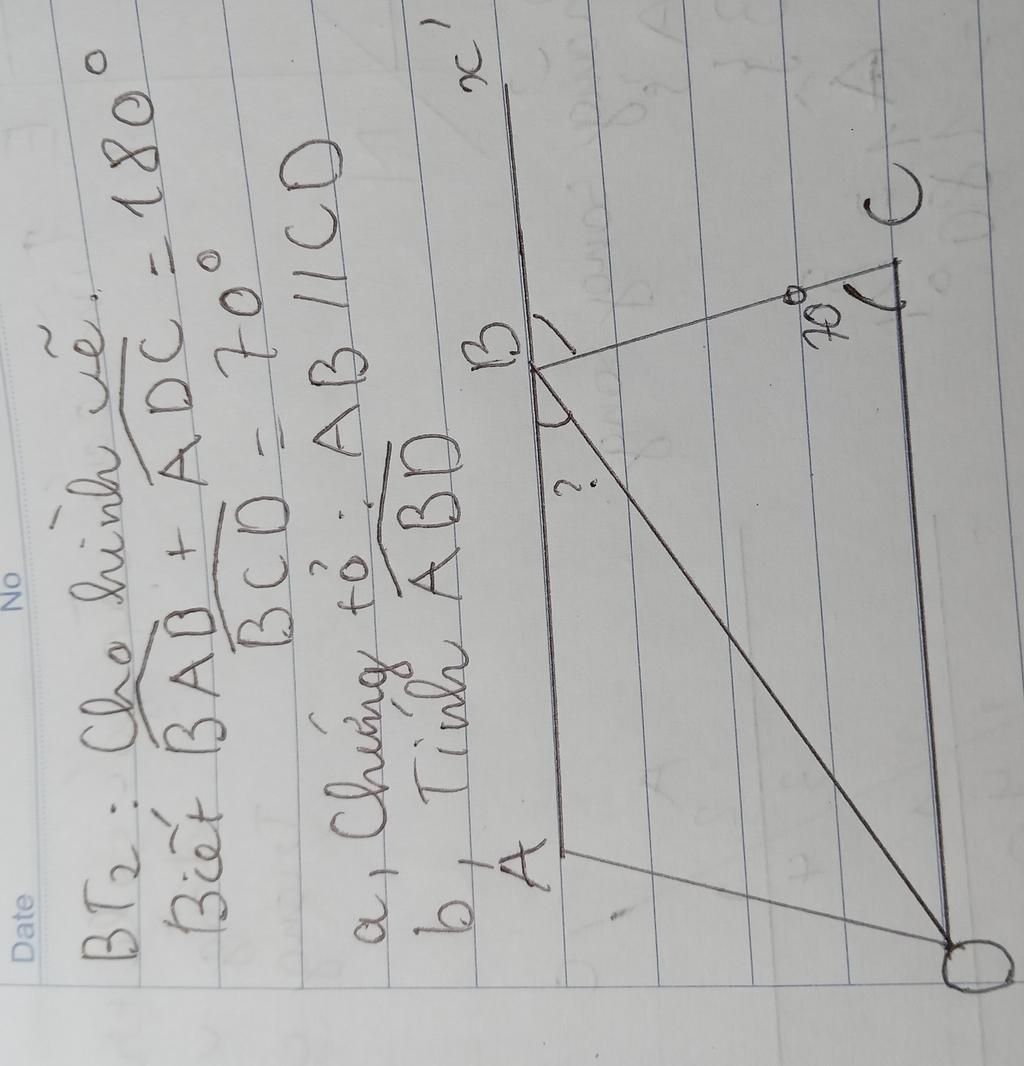 Date No
BT2: Cho hình vẽ.
Biết BAD + ADC = 180°
BCD = 70°
a, Chứng tỏ: AB // CD
b, Tính ABD
A B x'
?
70°
D C